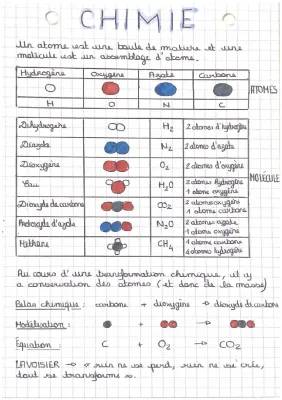 CHIMIE
Un atome est une boule de matière et une
molécule est un assemblage d'atome.
Hydrogène Oxygène Azote Carbone
ATOMES
H O N C
Dihydrogène H₂ 2 atomes d'hydrogène
Diazote N₂ 2 atomes d'azote
Dioxygène O₂ 2 atomes d'oxygène
Eau H₂O 2 atomes hydrogène
1 atome oxygène
MOLÉCULE
Dioxyde de carbone CO₂ 2 atomes oxygène
1 atome carbone
Protoxyde d'azote N₂O 2 atomes azote
1 atome oxygène
Méthane CH₄ 1 atome carbone
4 atomes hydrogène
Au cours d'une transformation chimique, il y
a conservation des atomes (et donc de la masse)
Bilan chimique : carbone + dioxygène → dioxyde de carbone
Modélisation : + →
Équation : C + O₂ → CO₂
LAVOISIER → « rien ne se perd, rien ne se crée,
tout se transforme ».